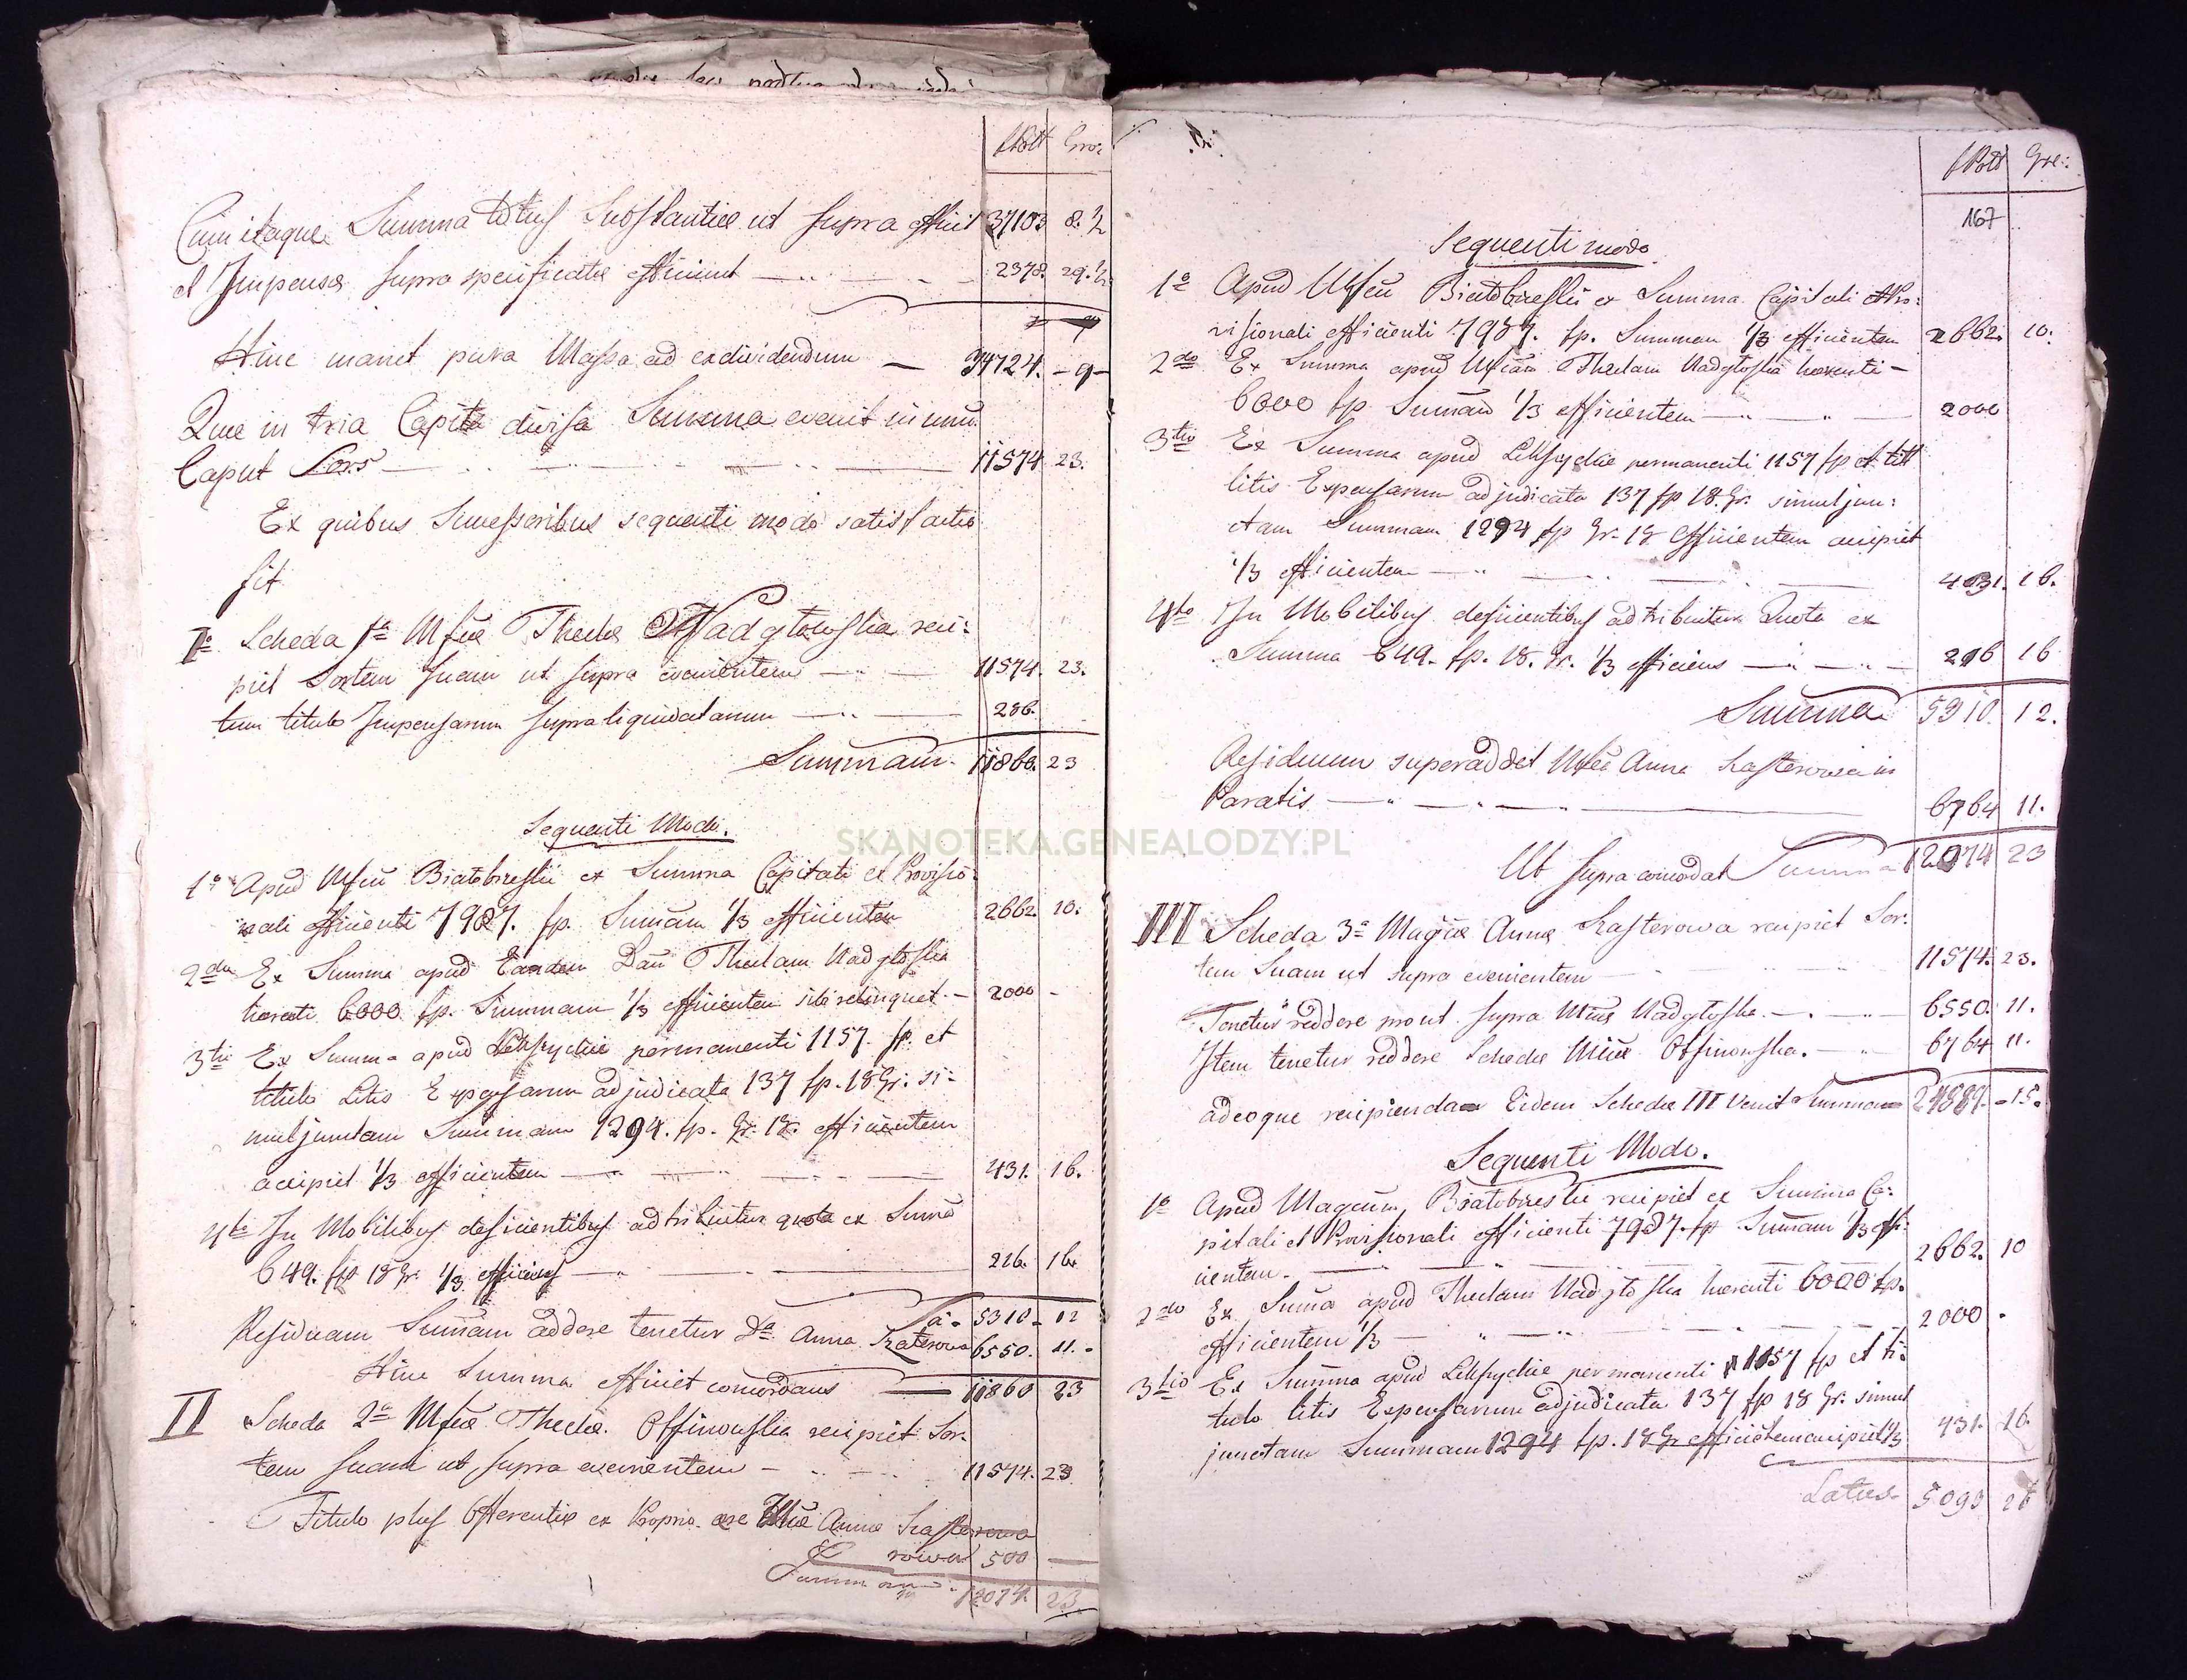 fPoll Gro:
Cum itaque Summa totius Substantiae ut supra efficit 37103 8.½
et Impensae supra specificatae efficiunt 2378. 29.½
Hinc manet pura Massa ad exdividendum 34724. - 9 -
Quae in tria Capita divisa Summa evenit in unum
Caput Sors 11574 23.
Ex quibus Successoribus sequenti modo satisfactio
fit
I Scheda 1a Thecla Nadgłowska reci:
piet Sortem suam ut supra evenientem 11574. 23.
tum titulo Impensarum supra liquidatarum 286.
Summam 11860. 23
Sequenti Modo.
1o Apud Białobrzeski ex Summa Capitali et Provisio:
nali efficienti 7987. fp. Summam 1/3 efficientem 2662. 10.
2do Ex Summa apud Eandem Theclam Nadgłoska
haerenti 6000 fp. Summam 1/3 efficientem sibi relinquet 2000 -
3tio Ex Summa apud permanenti 1157. fp. et
titulo Litis Expensarum adjudicata 137 fp. 18 Gr: si:
mul junctam Summam 1294. fp. Gr. 18. efficientem
accipiet 1/3 efficientem 431. 16.
4to In Mobilibus deficientibus adtribuitur quota ex Summa
649. fp 18 Gr. 1/3 efficiens 216. 16.
5310 - 12
Residuam Summam addere tenetur Da Anna 6550. 11. -
Hinc Summa efficiet concordans 11860 23
II Scheda 2a Thecla. Ossinowska recipiet Sor:
tem suam ut supra evenientem 11574. 23
Titulo plus Offerentiae ex Proprio aere Annae
rowa 500 —
Summam 12074 23.
fPoll Gre:
167
Sequenti modo
1o Apud Białobrzeski ex Summa Capitali et Pro:
visionali efficienti 7987. fp. Summam 1/3 efficientem 2662. 10.
2do Ex Summa apud Theclam Nadgłoska haerenti -
6000 fp Summam 1/3 efficientem 2000
3tio Ex Summa apud permanenti 1157 fp et titt
litis Expensarum adjudicata 137 fp 18. Gr. simul jun:
ctam Summam 1294 fp Gr. 18 efficientem accipiet
1/3 efficientem 431. 16.
4to In Mobilibus deficientibus adtribuitur Quota ex
Summa 649. fp. 18. Gr. 1/3 efficiens 216 16
Summa 5310. 12.
Residuum superaddet Anna in
Paratis 6764 11.
Ut supra concordat Summa 12074 23
III Scheda 3a Magcae Annae recipiet Sor:
tem Suam ut supra evenientem 11574. 23.
Tenetur reddere prout supra Nadgłoska. 6550. 11.
Item tenetur reddere Schedae Ossinowska. 6764 11.
adeoque recipienda Eidem Schedae III venit Summa 24889. - 15.
Sequenti Modo.
1o Apud Magcum Białobrzeski recipiet ex Summa Ca:
pitali et Provisionali efficienti 7987. fp Summam 1/3 effi:
cientem. 2662. 10
2do Ex Summa apud Theclam Nadgłoska haerenti 6000 fp.
efficientem 1/3 2000 -
3tio Ex Summa apud permanenti 1157 fp et ti:
tulo litis Expensarum adjudicata 137 fp 18 Gr. simul
junctam Summam 1294 fp. 18 Gr efficientem accipiet 1/3 431. 16.
Latus 5093 26
SKANOTEKA.GENEALODZY.PL